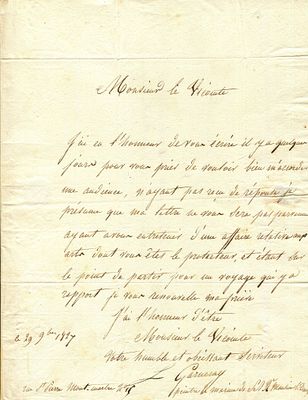 Monsieur le Vicomte
J'ai eu l'honneur de vous écrire il y a quelque
jours pour vous prier de vouloir bien m'accorder
une audience, n'ayant pas reçu de réponse je
présume que ma lettre ne vous sera pas parvenue
ayant à vous entretenir d'une affaire relative aux
arts dont vous êtes le protecteur, et étant sur
le point de partir pour un voyage qui y a
rapport je vous renouvelle ma prière
J'ai l'honneur d'être
le 29 9bre 1827
Monsieur le Vicomte
votre humble et obéissant serviteur
Garneray
rue St Pierre Montmartre
peintre de marine de S.A.R.